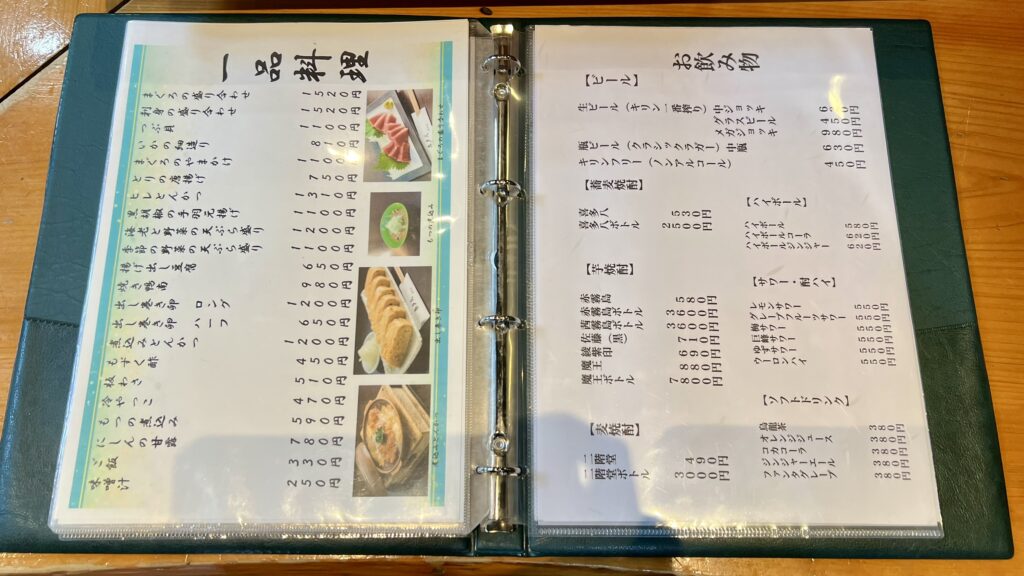 一品料理
まぐろの盛り合わせ 1520円
刺身の盛り合わせ 1520円
つぶ貝 1100円
いかの
まぐろのやまかけ
とりの唐揚げ 750円
ヒレとんかつ 1310円
黒胡椒の手羽元揚げ 1100円
海老と野菜の天ぷら盛り 1200円
季節の野菜の天ぷら盛り 1100円
揚げ出し豆腐 650円
焼き鴨南 980円
出し巻き卵 ロング 1200円
出し巻き卵 ハーフ 650円
煮込みとんかつ 1200円
もずく酢 450円
板わさ 510円
冷やっこ 470円
もつの煮込み 590円
にしんの甘露 780円
ご飯 330円
味噌汁 250円
まぐろの盛り合わせ
もつの煮込み
出し巻き卵
煮込みとんかつ
お飲み物
【ビール】
生ビール(キリン一番搾り)中ジョッキ
グラスビール
メガジョッキ 980円
瓶ビール(クラシックラガー)中瓶 630円
キリンフリー(ノンアルコール) 450円
【蕎麦焼酎】
喜多八 530円
喜多八ボトル 2500円
【芋焼酎】
赤霧島 580円
赤霧島ボトル 3600円
茜霧島ボトル 3600円
佐藤(黒) 710円
綾紫印 690円
魔王 880円
魔王ボトル 7800円
【麦焼酎】
二階堂 490円
二階堂ボトル 3000円
【ハイボール】
ハイボール 580円
ハイボールコーラ 620円
ハイボールジンジャー 620円
【サワー・酎ハイ】
レモンサワー 550円
グレープフルーツサワー 550円
巨峰サワー 550円
ゆずサワー 550円
ウーロンハイ 550円
【ソフトドリンク】
烏龍茶 380円
オレンジジュース 380円
コカコーラ 380円
ジンジャーエール 380円
ファンタグレープ 380円